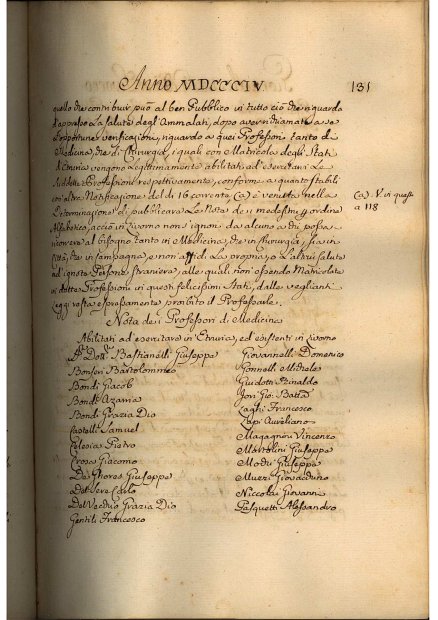 Anno MDCCCIV.
131
quello che contribuir può al ben Pubblico in tutto ciò che riguarda
d'appresso La salute degl Ammalati, dopo aver richiamate a se
Le opportune verificazioni, riguardo a quei Professori tanto di
Medicina, che di Chirurgia, i quali con Matricola degli Stati
d'Etruria vengono Legittimamente abilitati ad esercitare Le
suddette Professioni respettivamente, conforme a quanto stabilì
con altra Notificazione del dì 16 corrente (a) è venuta nella
(a) V. in questo
a 118
Determinazione di pubblicare La Nota dei medesimi per ordine
Alfabetico, acciò in Livorno non ignori da alcuno a chi possa
ricorrere al bisogno tanto in Medicina, che in Chirurgia, sia in
Città, che in Campagna, e non affidi La propria, o L'altrui salute
ad ignota Persona straniera, alle quali non essendo Matricolate
in dette Professioni in questi felicissimi Stati, dalle veglianti
Leggi resta espressamente proibito il Professarle.
Nota dei Professori di Medicina
Abilitati ad esercitare in Etruria, ed esistenti in Livorno
Dott. Bastianelli Giuseppe
Bonferi Bartolommeo
Bondì Giacob
Bondì Azaria
Bondì Grazia Dio
Castelli Samuel
Celesia Pietro
Crosa Giacomo
De Ghores Giuseppe
Carlo
Del Vecchio Grazia Dio
Gentili Francesco
Giovannelli Domenico
Gonnelli Michele
Guidotti Rinaldo
Gio: Batta
Laghi Francesco
Lapi Aureliano
Magagnini Vincenzo
Martolini Giuseppe
Modri Giuseppe
Giovacchino
Niccolai Giovanni
Pasquetti Alessandro